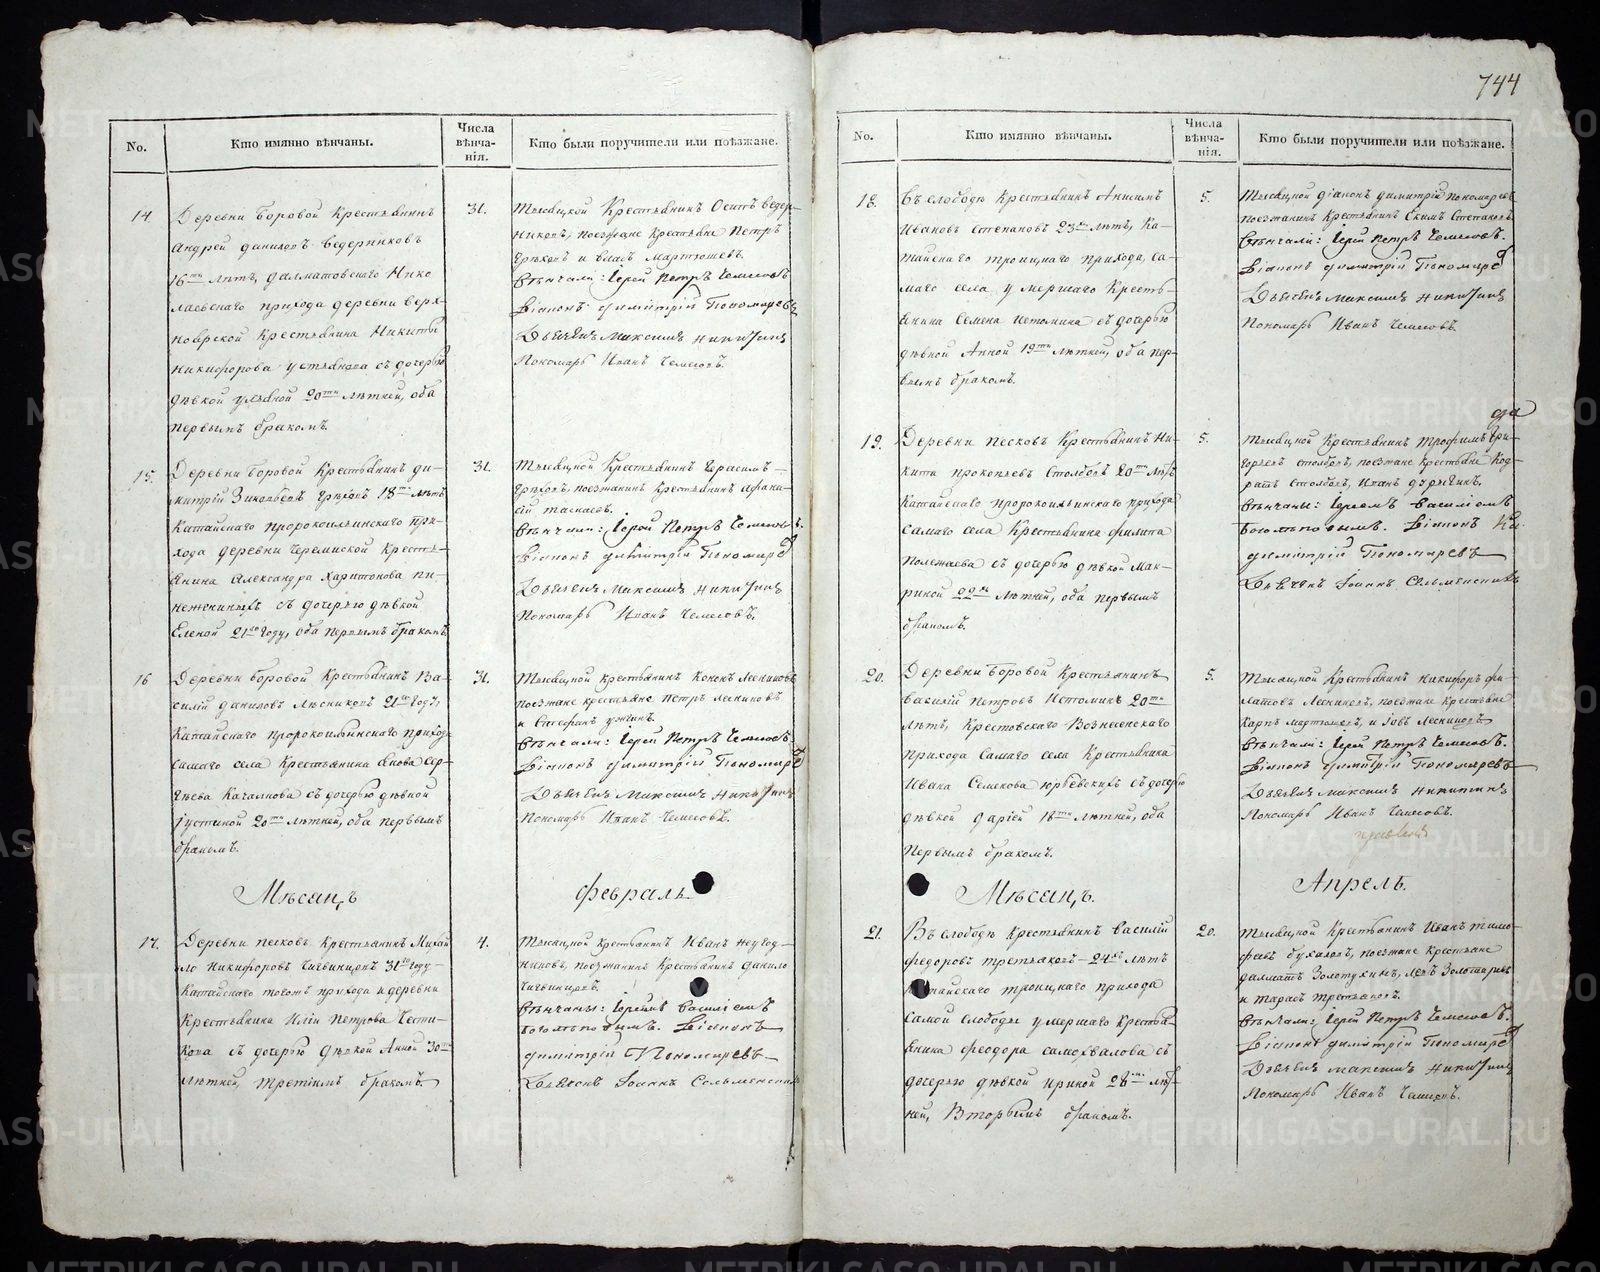 744
No.
Кто имянно вѣнчаны.
Числа вѣнча-
нія.
Кто были поручители или поѣзжане.
14.
Деревни Боровой Крестьянинъ
Андрей Даниловъ Ведерниковъ
16ти лѣтъ, Далматовскаго Нико
лаевскаго прихода деревни Верх-
Крестьянина Никиты
Никифорова съ дочерью
дѣвкой 20ти лѣтней, оба
первымъ бракомъ.
31.
Тысяцкой Крестьянинъ Осипъ Ведер-
никовъ, поезжане Крестьяне Петръ
и Власъ Мартюшевъ.
Вѣнчали: Іерей Петръ
Діаконъ Димитрій Пономаревъ
Дьячекъ Максимъ Никитинъ
Пономарь Иванъ
15.
Деревни Боровой Крестьянинъ Ди-
митрій 18ти лѣтъ
Катайскаго пророкоильинскаго при-
хода деревни Черемиской Кресть-
янина Александра Харитонова
съ дочерью дѣвкой
Еленой 21го году, оба первымъ бракомъ.
31.
Тысяцкой Крестьянинъ Герасимъ
поезжанинъ Крестьянинъ Афана-
сій
Вѣнчали: Іерей Петръ
Діаконъ Димитрій Пономаревъ
Дьячекъ Максимъ Никитинъ
Пономарь Иванъ
16
Деревни Боровой Крестьянинъ Ва-
силій Даниловъ Лѣсниковъ 21го году,
Катайскаго пророкоильинскаго прихода
самаго села Крестьянина Якова Сер-
гѣева съ дочерью дѣвкой
Іустиной 20ти лѣтней, оба первымъ
бракомъ.
31.
Тысяцкой крестьянинъ Кононъ Лесниковъ
поезжане крестьяне Петръ Лесниковъ
и Стефанъ
Вѣнчали: Іерей Петръ
Діаконъ Димитрій Пономаревъ
Дьячекъ Максимъ Никитинъ
Пономарь Иванъ
Мѣсяцъ
Февраль
17.
Деревни песковъ Крестьянинъ Михай
ло Никифоровъ 31го году
Катайскаго тогожъ прихода и деревни
Крестьянина Иліи Петрова Чести-
кова съ дочерью дѣвкой Анной 30ти
лѣтней, третьимъ бракомъ.
4.
Тысяцкой крестьянинъ Иванъ Неугод-
никовъ, поезжанинъ Крестьянинъ Данило
Вѣнчаны: Іереемъ Василіемъ
Боголѣповымъ. Діаконъ
Димитрій Пономаревъ
Дьячекъ Іоаннъ
No.
Кто имянно вѣнчаны.
Числа вѣнча-
нія.
Кто были поручители или поѣзжане.
18.
Въ слободѣ Крестьянинъ Анисимъ
Ивановъ Степановъ 23хъ лѣтъ, Ка-
тайскаго троицкаго прихода, са-
маго села умершаго Кресть-
янина Семена Истомина съ дочерью
дѣвкой Анной 19ти лѣтней, оба пер-
вымъ бракомъ.
5.
Тысяцкой діаконъ Димитрій Пономаревъ
поезжанинъ Крестьянинъ Екимъ Степановъ
Вѣнчали: Іерей Петръ
Діаконъ Димитрій Пономаревъ
Дьячекъ Максимъ Никитинъ
Пономарь Иванъ
19.
Деревни песковъ Крестьянинъ Ни-
кита Прокопьевъ Столбовъ 20ти лѣтъ
Катайскаго пророкоильинскаго прихода
самаго села Крестьянина Филипа
Полежаева съ дочерью дѣвкой Мак-
риной 22хъ лѣтней, оба первымъ
бракомъ.
5.
Тысяцкой Крестьянинъ Трофимъ Гри-
горьевъ Столбовъ, поезжане крестьяне Код-
ратъ Столбовъ, Иванъ
Вѣнчаны: Іереемъ Василіемъ
Боголѣповымъ. Діаконъ
Димитрій Пономаревъ
Дьячекъ Іоаннъ
20.
Деревни Боровой Крестьянинъ
Василій Петровъ Истоминъ 20ти
лѣтъ, Крестовскаго Вознесенскаго
прихода самаго села Крестьянина
Ивана Семенова съ дочерью
дѣвкой Даріей 18ти лѣтней, оба
первымъ бракомъ.
5.
Тысяцкой Крестьянинъ Никифоръ Фи-
латовъ Лесниковъ, поезжане Крестьяне
Карпъ Мартюшевъ, и Іовъ Лесниковъ
Вѣнчали: Іерей Петръ
Діаконъ Димитрій Пономаревъ
Дьячекъ Максимъ Никитинъ
Пономарь Иванъ
Мѣсяцъ.
Апрель.
21.
Въ слободѣ Крестьянинъ Василій
Федоровъ Третьяковъ 24хъ лѣтъ
Катайскаго троицкаго прихода
самой слободы умершаго Крестья-
янина Феодора Самохвалова съ
дочерью дѣвкой Ириной 28ми лѣт-
ней, Вторымъ бракомъ.
20.
Тысяцкой Крестьянинъ Иванъ Тимо-
феевъ поезжане Крестьяне
Далматъ Золотухинъ, Левъ
и Тарасъ Третьяковъ.
Вѣнчали: Іерей Петръ
Діаконъ Димитрій Пономаревъ
Дьячекъ Максимъ Никитинъ
Пономарь Иванъ
METRIKI.GASO-URAL.RU